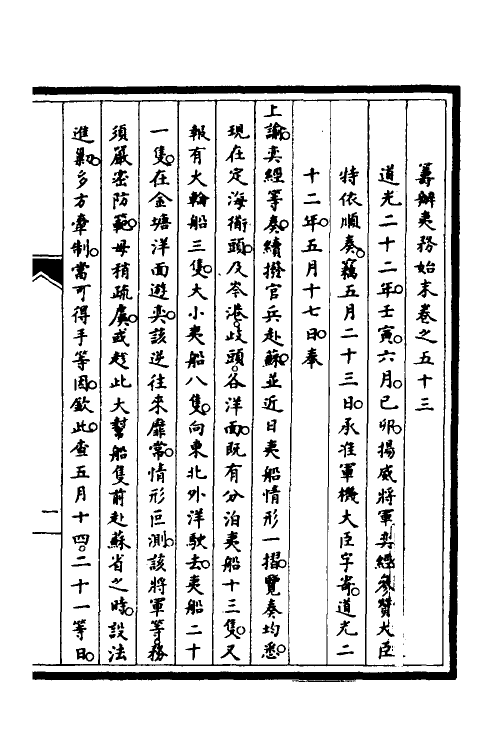 籌辦夷務始末卷之五十三
道光二十二年。壬寅。六月。己卯。揚威將軍奕經參贊大臣
特依順奏。竊五月二十三日。承准軍機大臣字寄。道光二
十二年。五月十七日。奉
上諭。奕經等奏。續撥官兵赴蘇。並近日夷船情形一摺。覽奏均悉。
現在定海衜頭。及岑港。歧頭。各洋面。既有分泊夷船十三隻。又
報有火輪船三隻。大小夷船八隻。向東北外洋駛去。夷船二十
一隻。在金塘洋面遊奕。該逆往來靡常。情形叵測。該將軍等。務
須嚴密防範。毋稍疏虞。或趁此大幫船隻前赴蘇省之時。設法
進剿。多方牽制。當可得手等因。欽此。查五月十四。二十一等日。
一